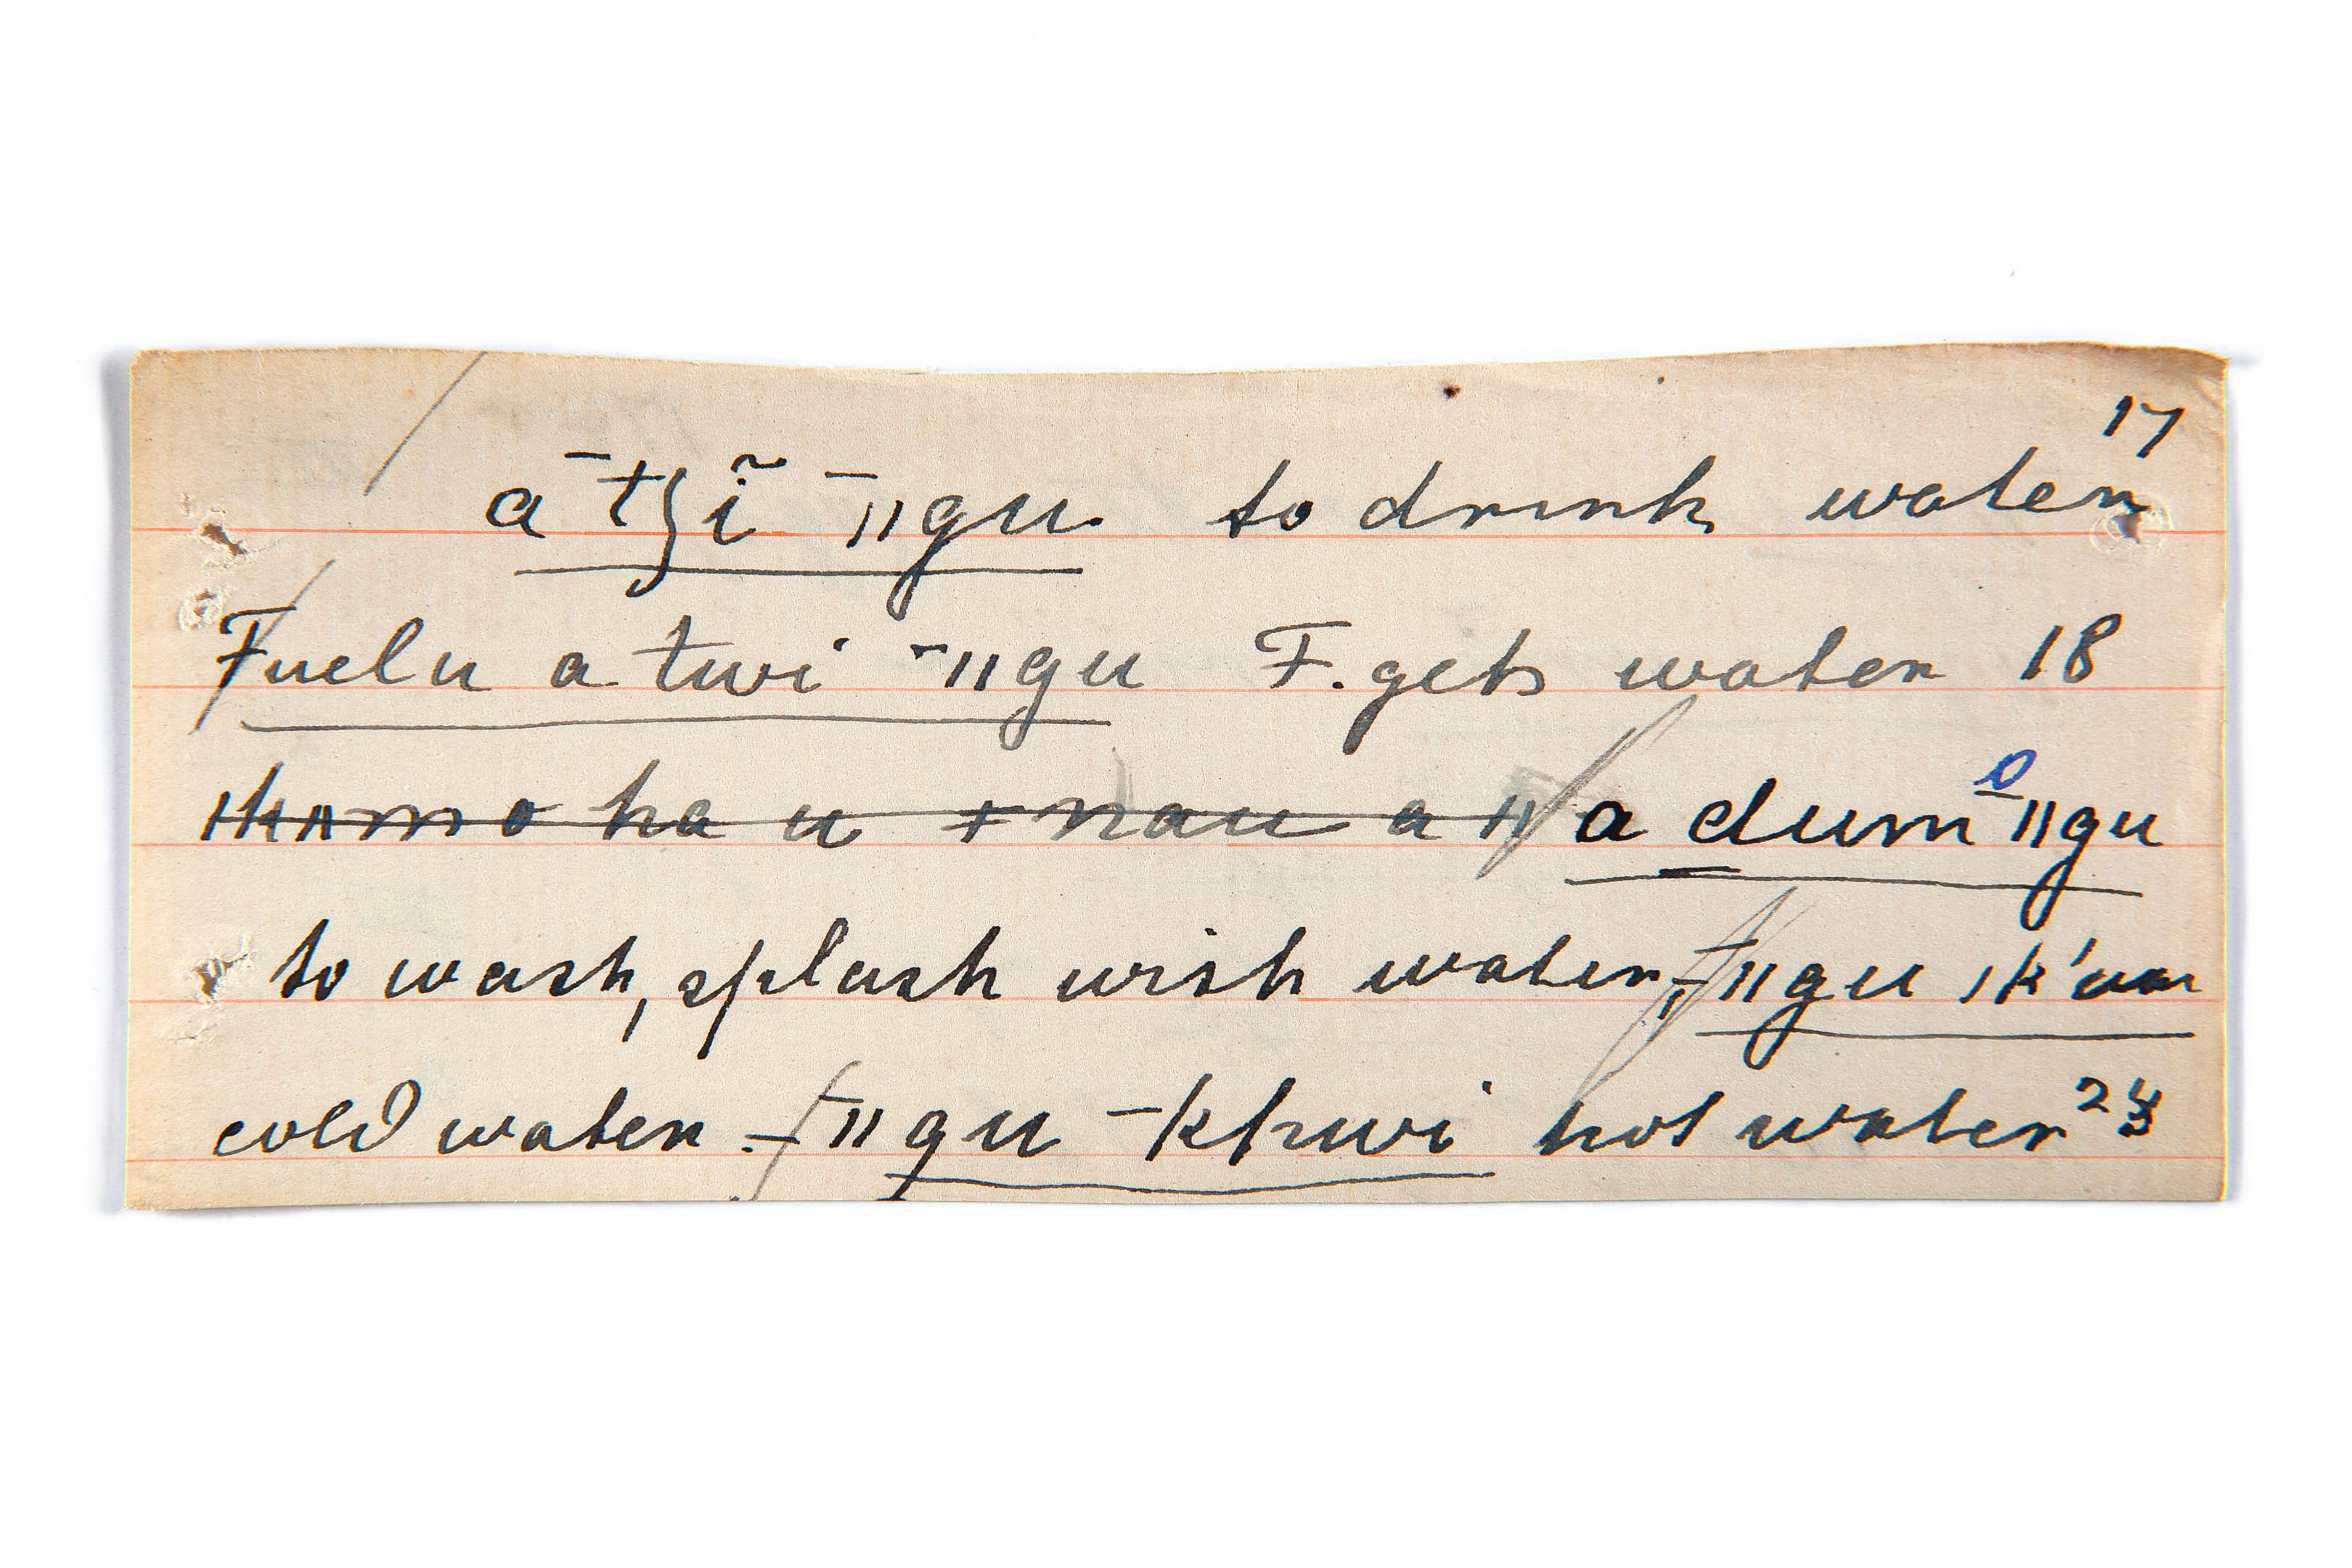 17
a ¯tʒĩ ¯ǁgu to drink water
Fuelu a twi ¯ǁgu F. gets water 18
a dum ¯ǁgu
to wash, splash wish water, ¯ǁgu ǀk'au
cold water - ¯ǁgu ¯khwi hot water 24